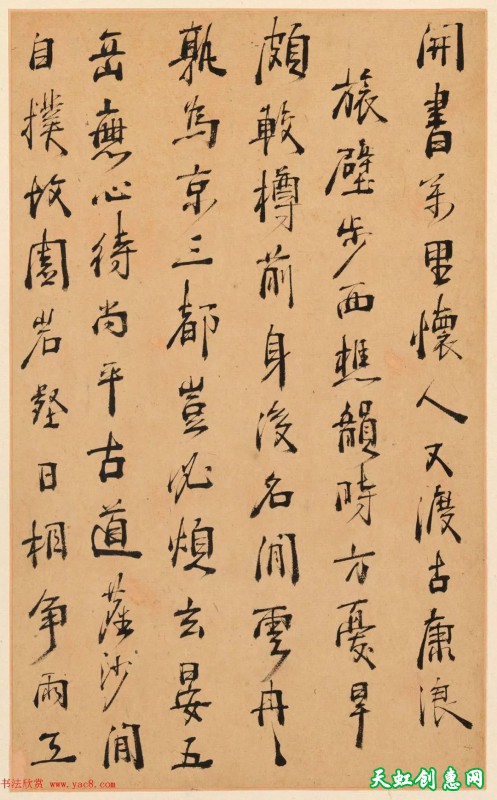 開書萬里懷人又渡古康浪
旅壁步西樵韻時方憂旱
頗較樽前身後名閒雲冉〻
孰為京三都豈必煩玄晏五
岳無心待尚平古道蘿沙閒
自撲故園岩壑日相爭雨工
书法欣赏 www.yac8.com
天虹创惠网